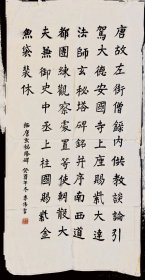 唐故左街僧錄內供教談論引
駕大德安國寺上座賜紫大達
法師玄秘塔碑銘并序南西道
都團練觀察處置等使朝散大
夫兼御史中丞上柱國賜紫金
魚袋裴休
臨唐玄秘塔碑